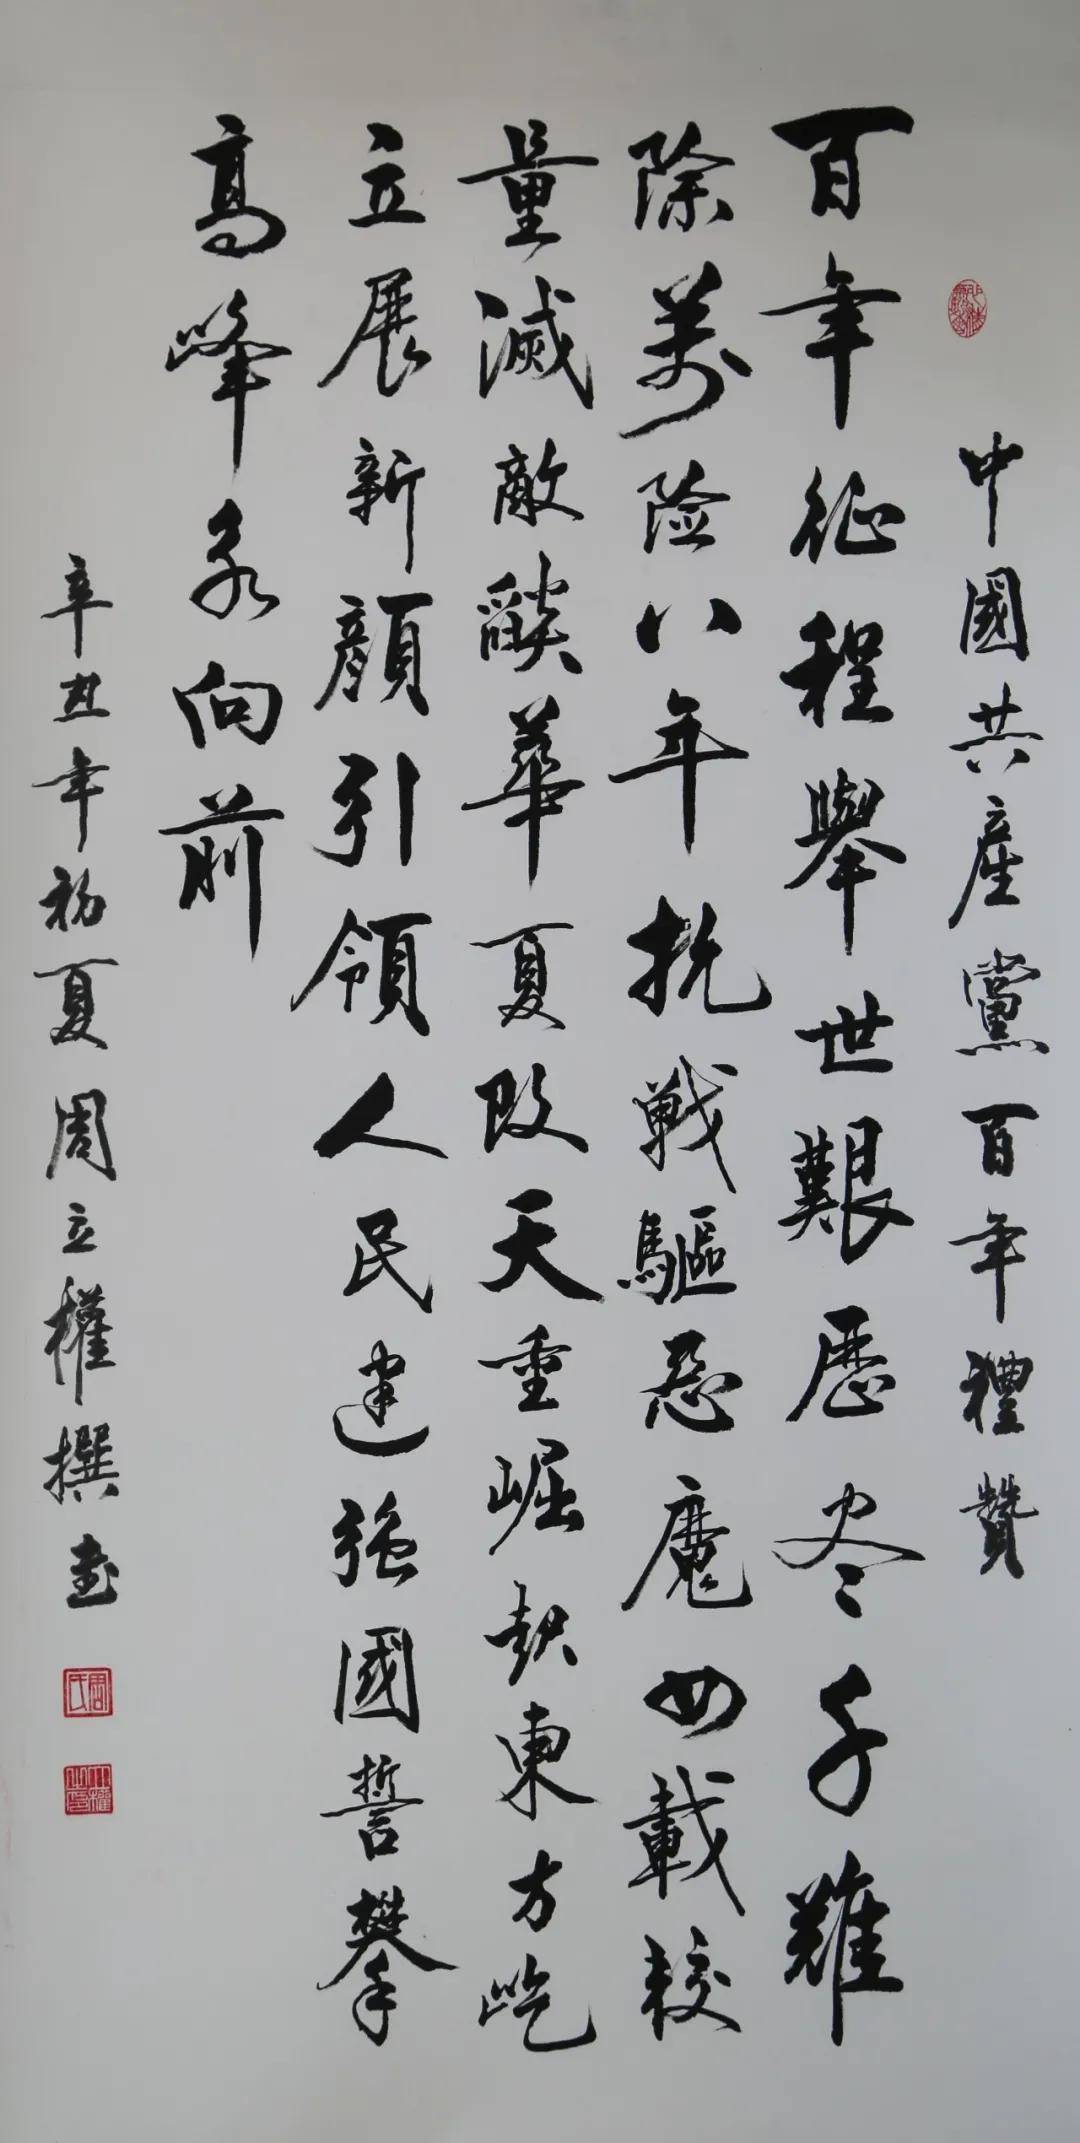 中國共産黨百年禮贊
百年征程舉世艱歷尽千難
除萬险八年抗戰驅惡魔四載較
量滅敵燄華夏改天重崛起東方屹
立展新顔引領人民建強國誓攀
高峰永向前
辛丑年初夏周立權撰書
周氏
立權之印